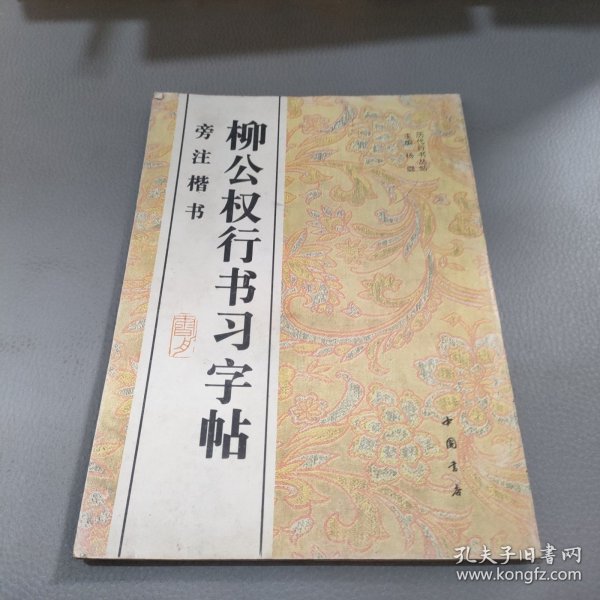 历代行书丛帖
主编 杨璐
柳公权行书习字帖
旁注楷书
中国书店
孔夫子旧书网
www.kongfz.com